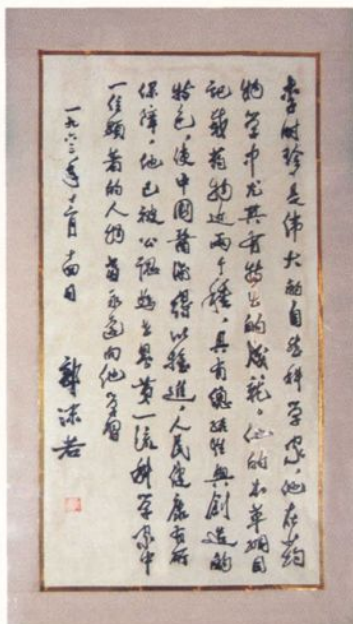 李时珍是伟大的自然科学家，他在药
物学中尤其有特出的成就。他的本草纲目
记载药物近两千种，具有總结性與創造的
特色，使中国醫術得以推進，人民健康有所
保障。他已被公認為世界第一流科学家中
一位顯著的人物，當永遠向他学習
一九六三年十二月十四日
郭沫若